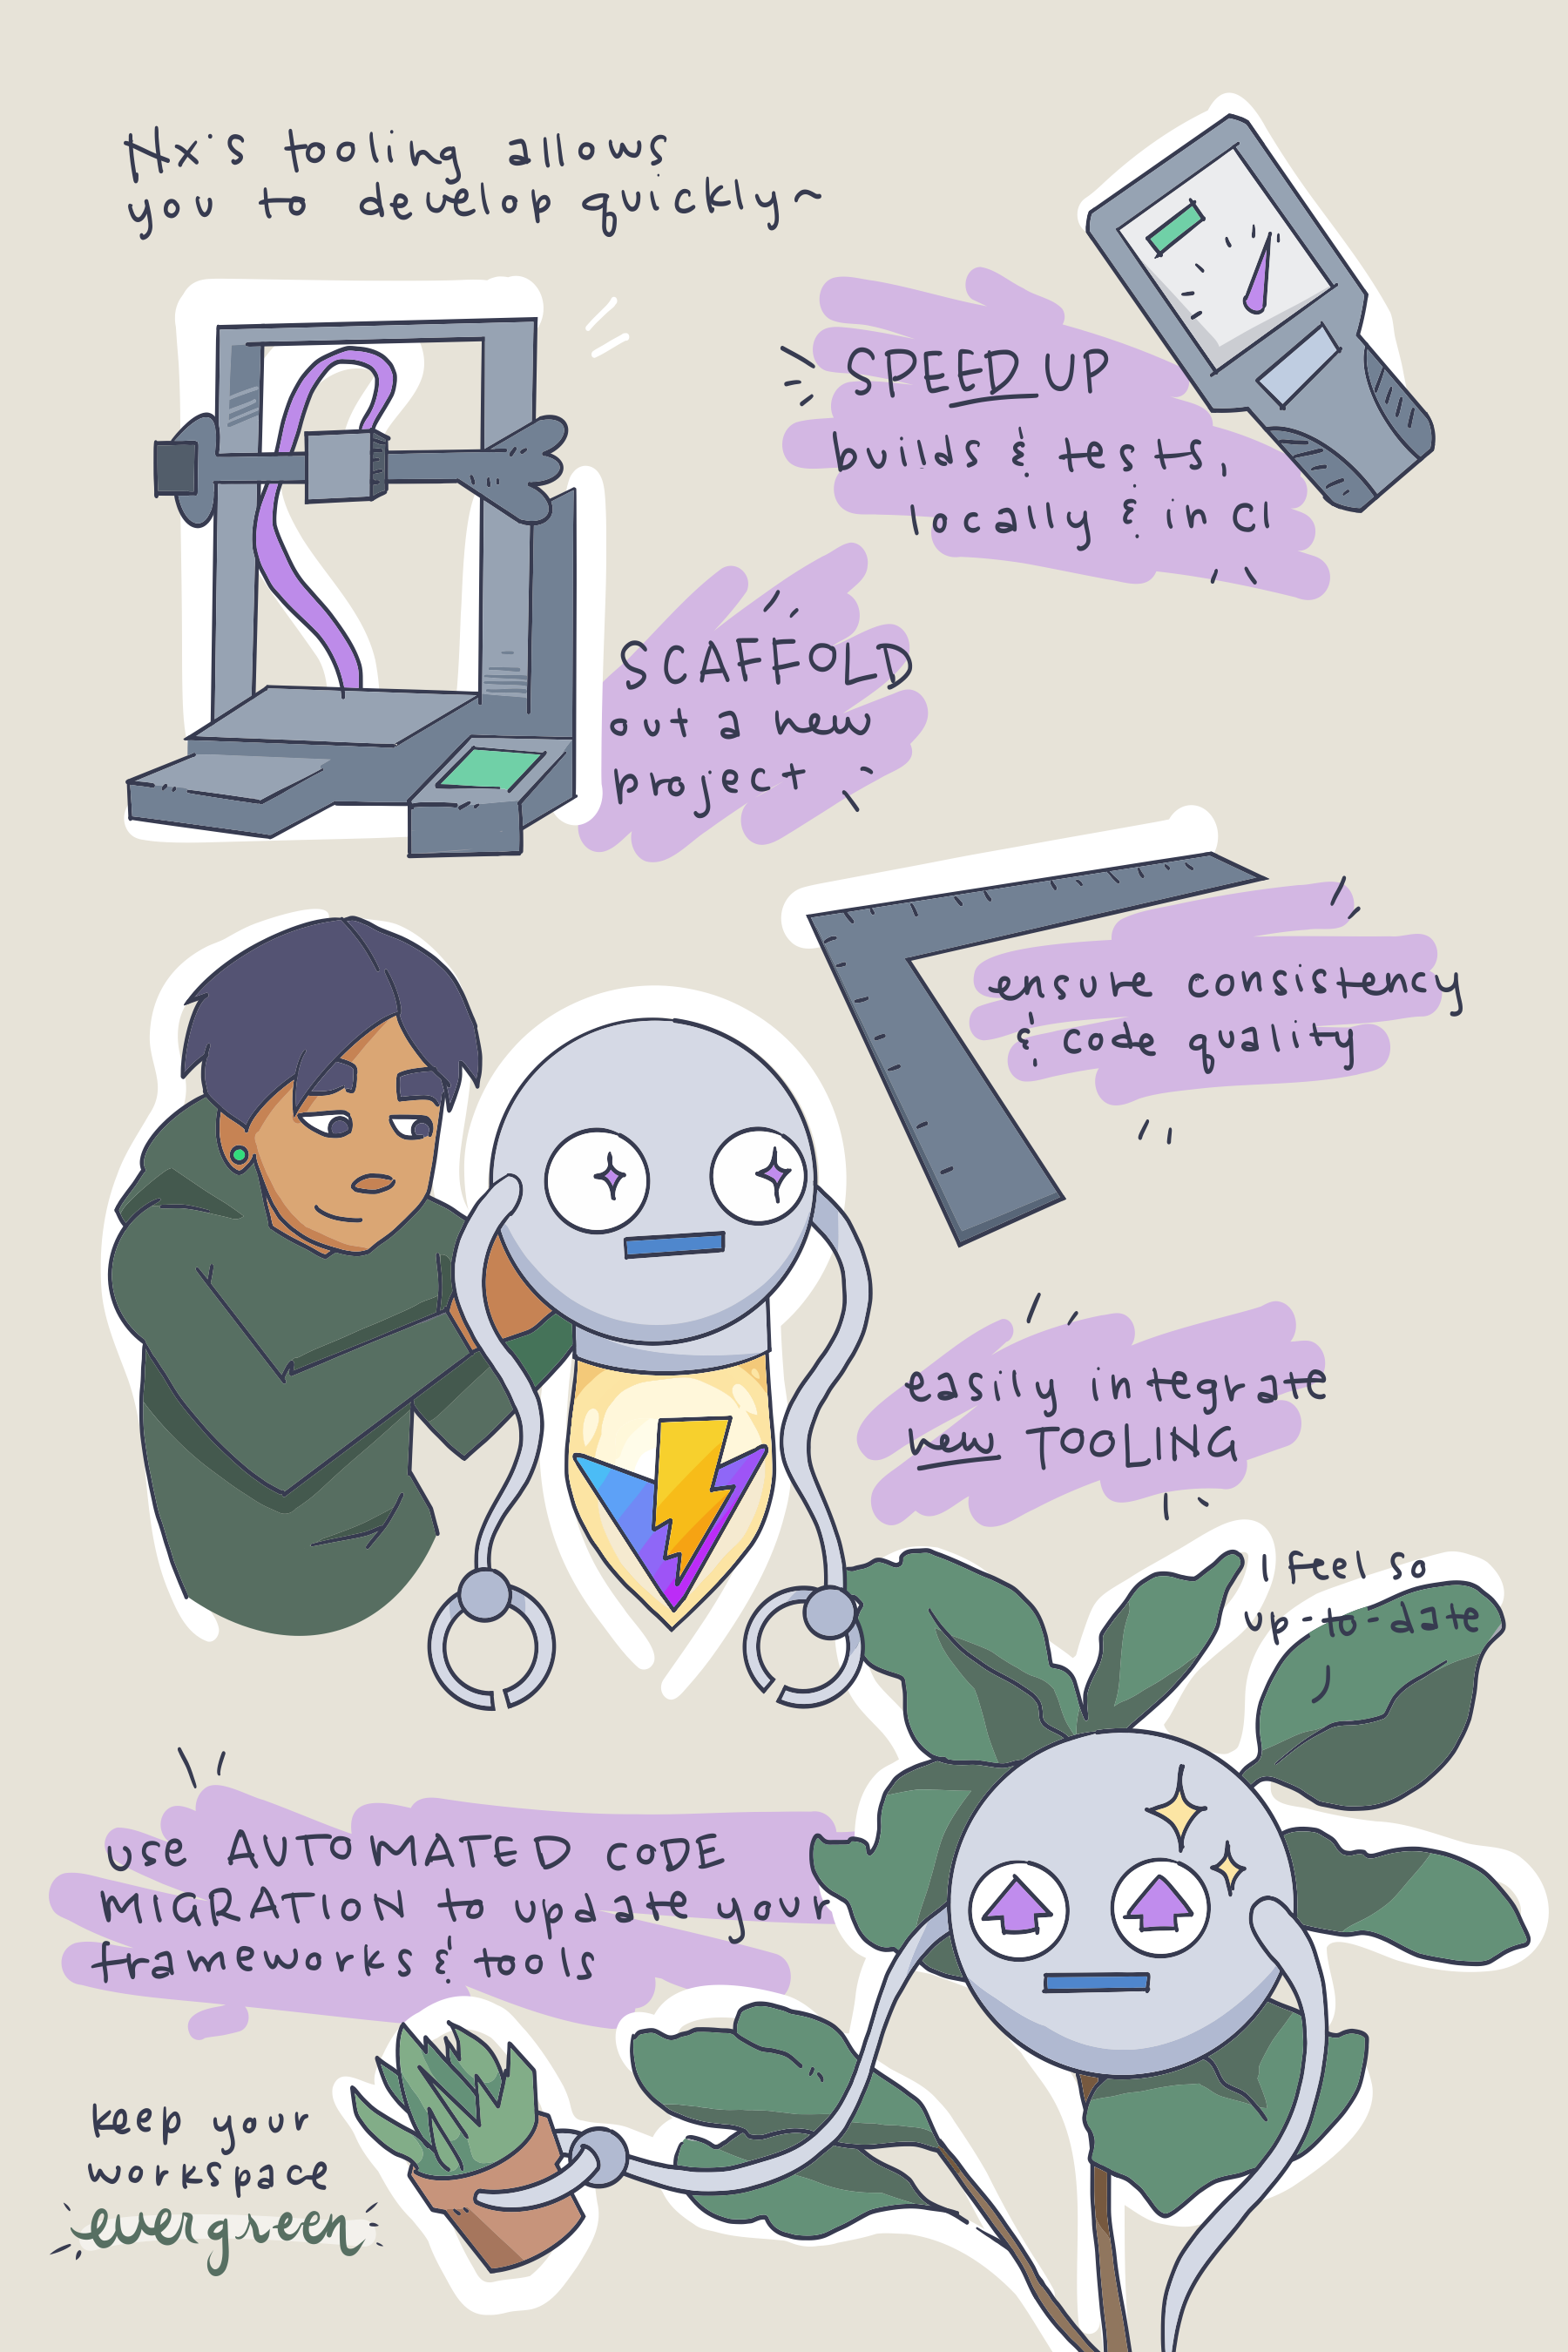 Nx's tooling allows
you to develop quickly~
SPEED UP
builds & tests,
locally & in CI
SCAFFOLD
out a new
project
ensure consistency
& code quality
easily integrate
new TOOLING
I feel so
up-to-date
use AUTOMATED CODE
MIGRATION to update your
frameworks & tools
keep your
workspace
evergreen